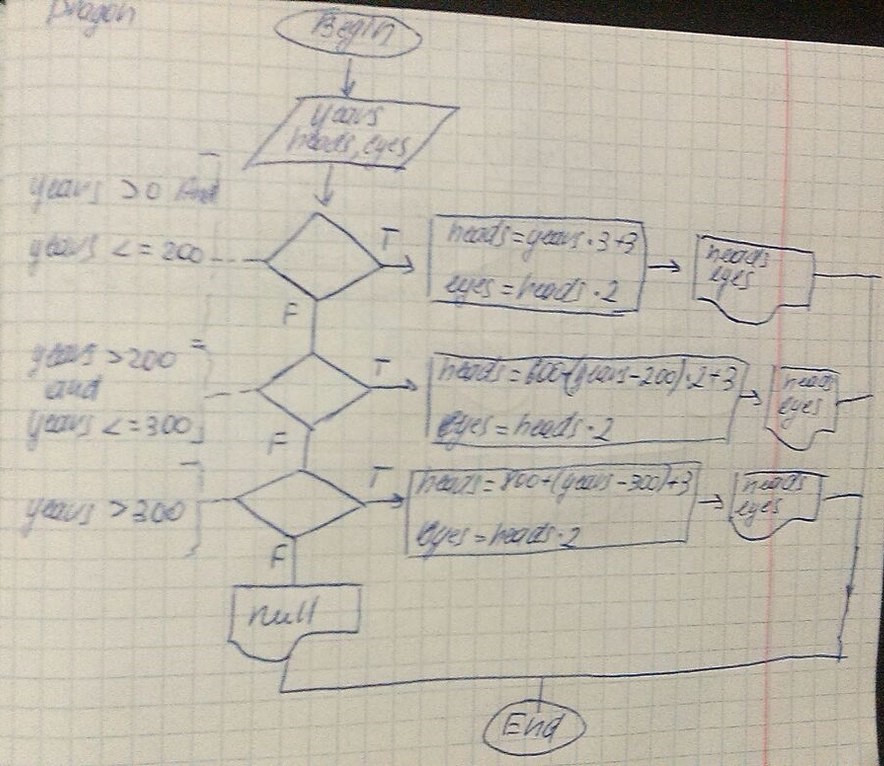 Dragon
Begin
years
heads, eyes
years >0 And
years <= 200
T
heads = years · 3 + 3
eyes = heads · 2
heads
eyes
F
years >200
and
years <= 300
T
heads = 600+(years - 200) · 2 + 3
eyes = heads · 2
heads
eyes
F
years >300
T
heads = 800+(years - 300)+3
eyes = heads · 2
heads
eyes
F
null
End